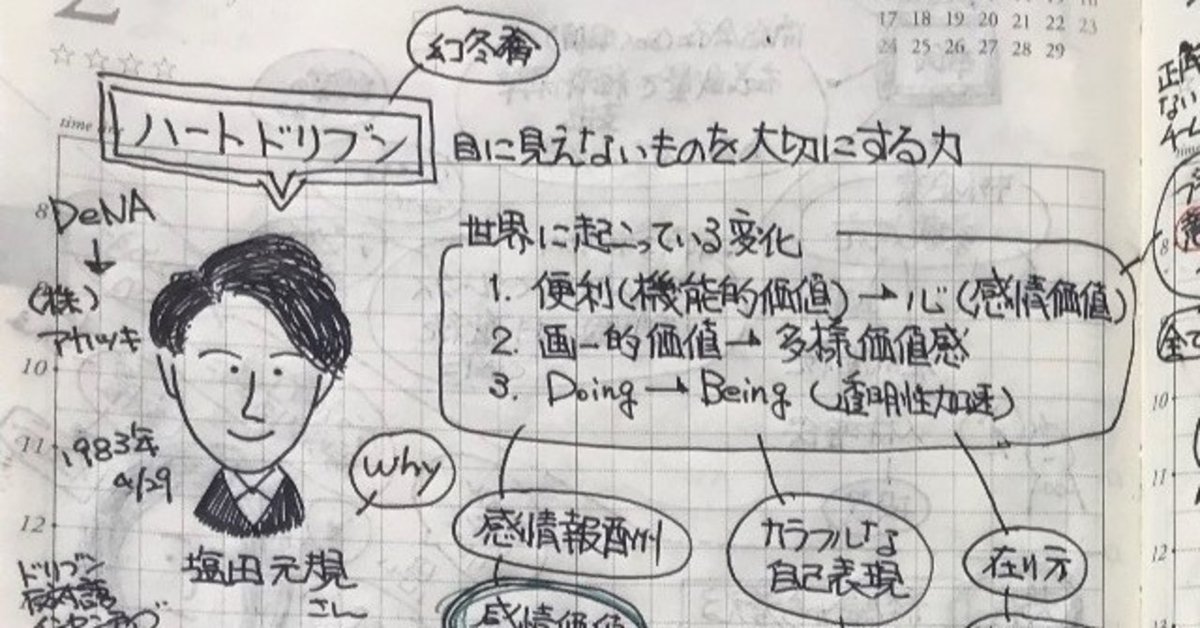 2
17 18 19 20 21 22 23
24 25 26 27 28 29
幻冬舎
ハートドリブン
目に見えないものを大切にする力
time
8
DeNA
(株)
アカツキ
10
11
1983年
4/29
12
塩田元規
さん
ドリブン
反対語
インセンティブ
世界に起こっている変化
1. 便利(機能的価値)→心(感情価値)
2. 画一的価値→多様価値感
3. Doing→Being(透明性加速)
Why
感情報酬
感情価値
カラフルな
自己表現
在り方
ない
全て
8
10
11
12
13